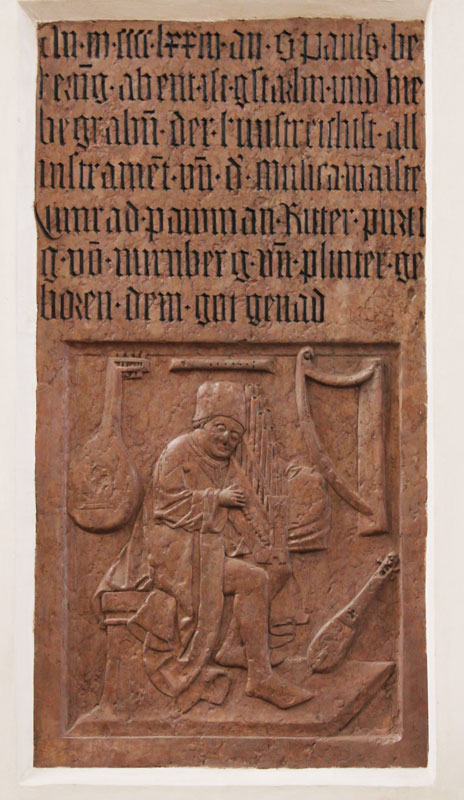 An · m · cccc · lxxiii · an · S pauls · be
kerūg · abent · ist · gstarbn · und hie
begrabn̄ · der · kunstreichist · all
instramēt · vn̄ · d̄ · Musica · maiste
Cunrad · pawman · Ritter · purti
g · vō · nurnberg · vn̄ · plinter · ge
boren · dem · got genad